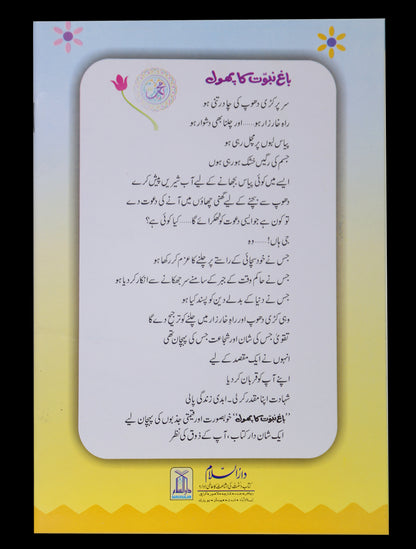 باغِ نبوّت کا پھول
سر پر کڑی دھوپ کی چادر تنی ہو
راہ خارزار ہو......اور چلنا بھی دشوار ہو
پیاس لبوں پر مچل رہی ہو
جسم کی رگیں خشک ہو رہی ہوں
ایسے میں کوئی پیاس بجھانے کے لیے آب شیریں پیش کرے
دھوپ سے بچنے کے لیے گھنی چھاؤں میں آنے کی دعوت دے
تو کون ہے جو ایسی دعوت کو ٹھکرائے گا......کیا کوئی ہے؟
جی ہاں!......وہ
جس نے خود سچائی کے راستے پر چلنے کا عزم کر رکھا ہو
جس نے حاکم وقت کے جبر کے سامنے سر جھکانے سے انکار کر دیا ہو
جس نے دنیا کے بدلے دین کو پسند کیا ہو
وہی کڑی دھوپ اور راہ خارزار میں چلنے کو ترجیح دے گا
تقویٰ جس کی شان اور شجاعت جس کی پہچان تھی
انہوں نے ایک مقصد کے لیے
اپنے آپ کو قربان کر دیا
شہادت اپنا مقدر کر لی۔ ابدی زندگی پالی
"باغِ نبوّت کا پھول" خوبصورت اور قیمتی جذبوں کی پہچان لیے
ایک شان دار کتاب، آپ کے ذوق کی نظر
دارُالسلام
کتاب و سنت کی اشاعت کا عالمی ادارہ
DARUSSALAM